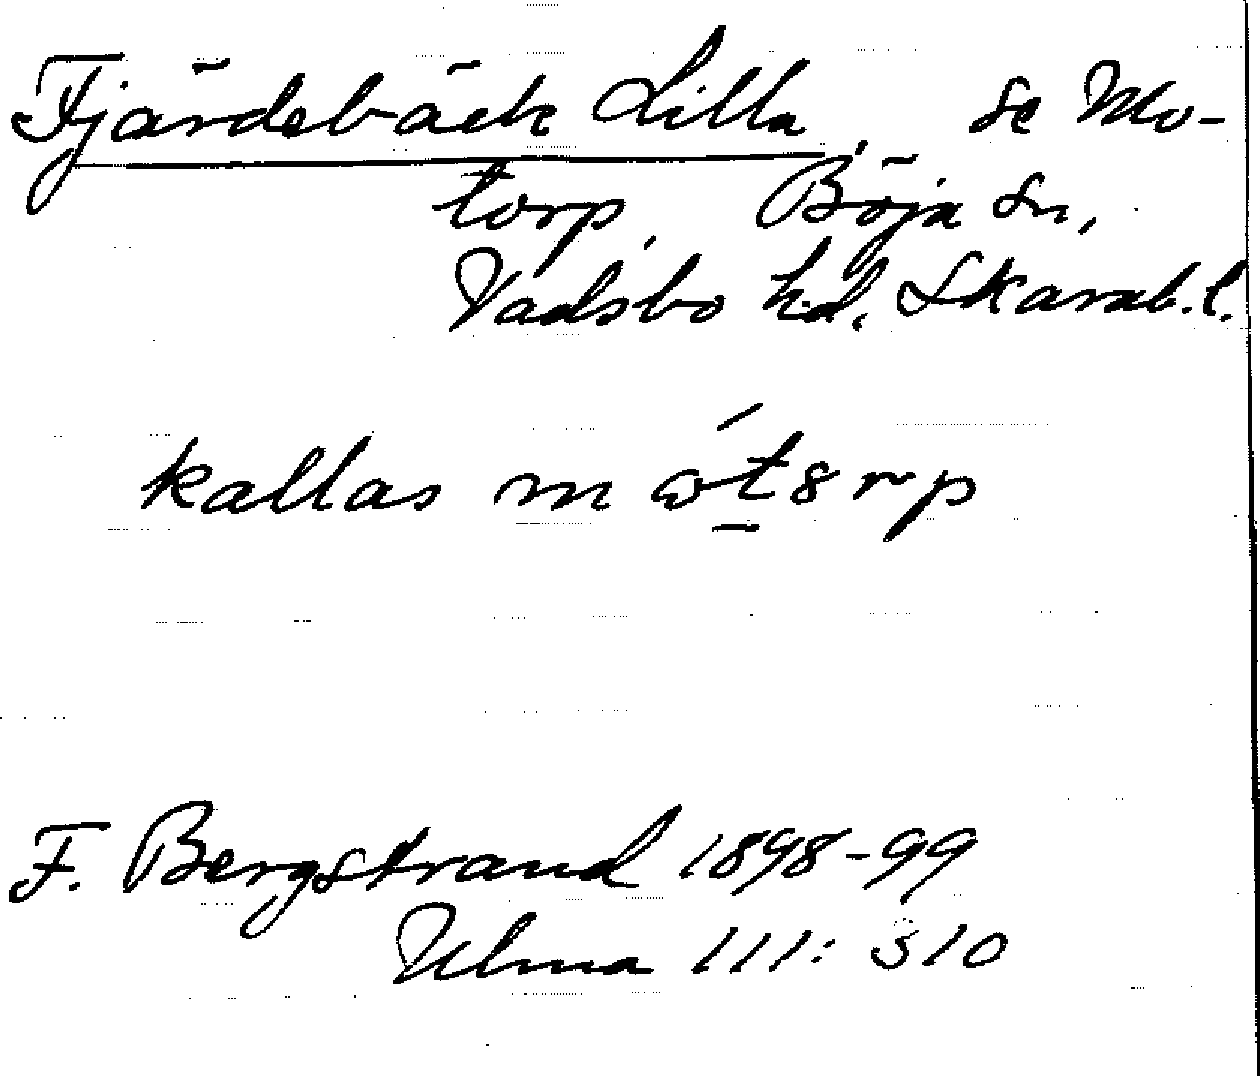 Fjärdebäck Lilla, se Mo-
torp, Böja sn,
Vadsbo hd, Skarab. l.
kallas
F. Bergstrand 1898-99
Ulma 111: 310